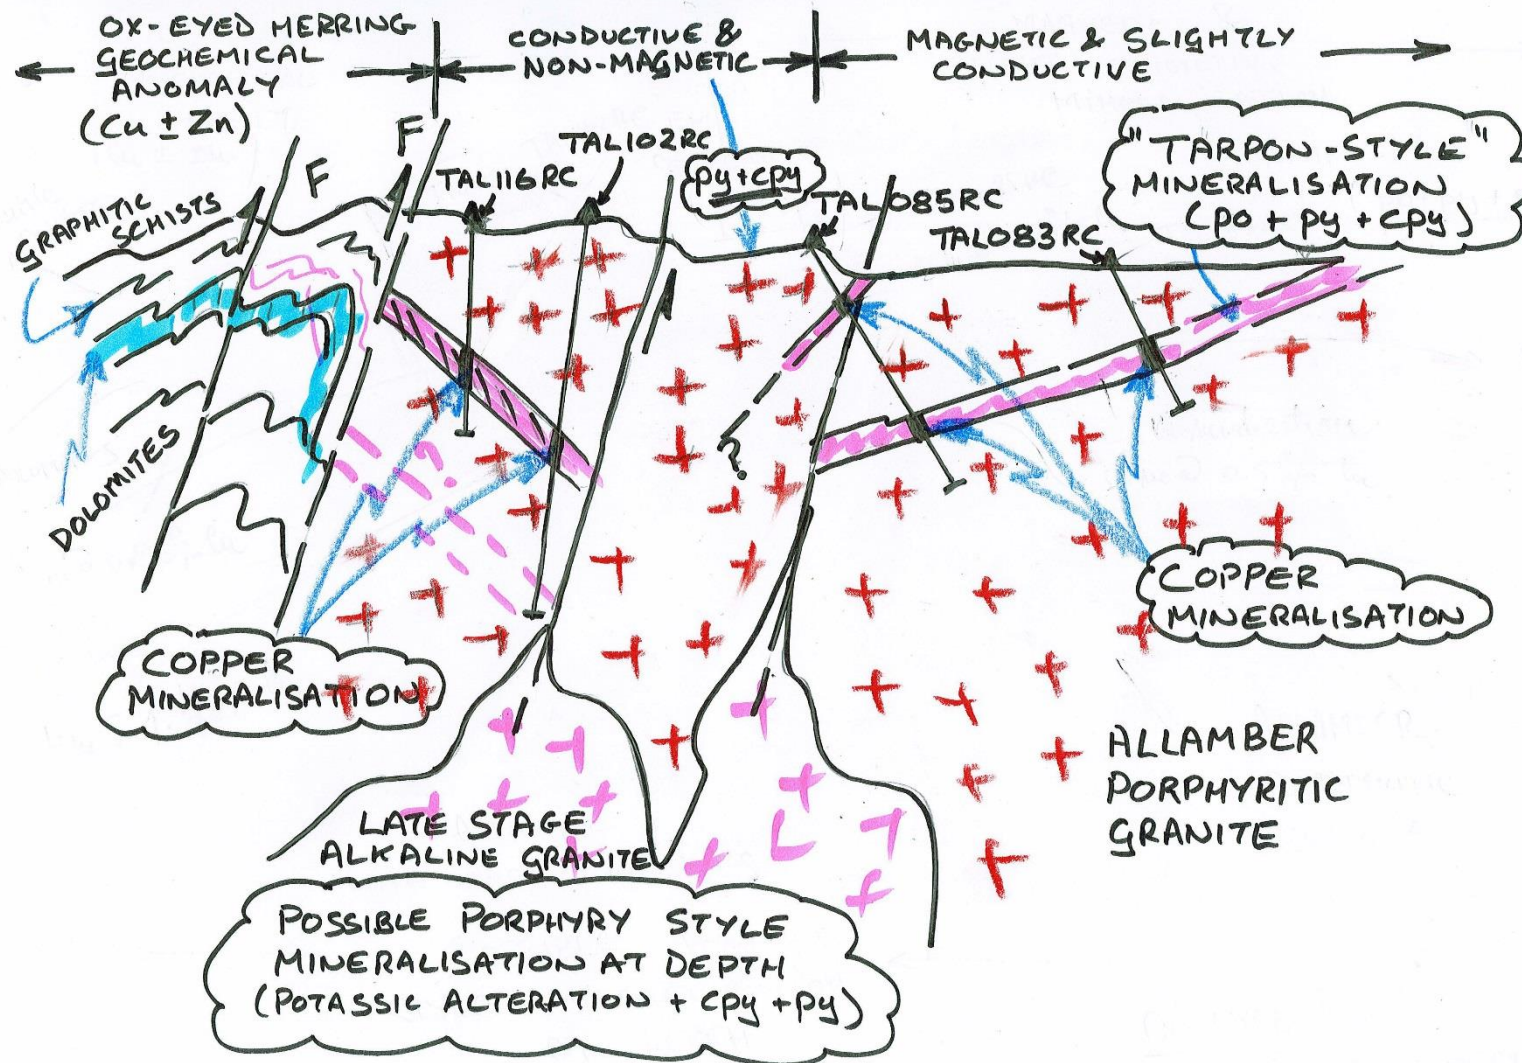 OX-EYED HERRING
GEOCHEMICAL
ANOMALY
(Cu ± Zn)
CONDUCTIVE &
NON-MAGNETIC
MAGNETIC & SLIGHTLY
CONDUCTIVE
F
F
TAL116RC
TAL102RC
py+cpy
TAL085RC
TAL083RC
"TARPON-STYLE"
MINERALISATION
(po + py + cpy)
GRAPHITIC
SCHISTS
DOLOMITES
?
COPPER
MINERALISATION
COPPER
MINERALISATION
ALLAMBER
PORPHYRITIC
GRANITE
LATE STAGE
ALKALINE GRANITE
POSSIBLE PORPHYRY STYLE
MINERALISATION AT DEPTH
(POTASSIC ALTERATION + cpy + py)